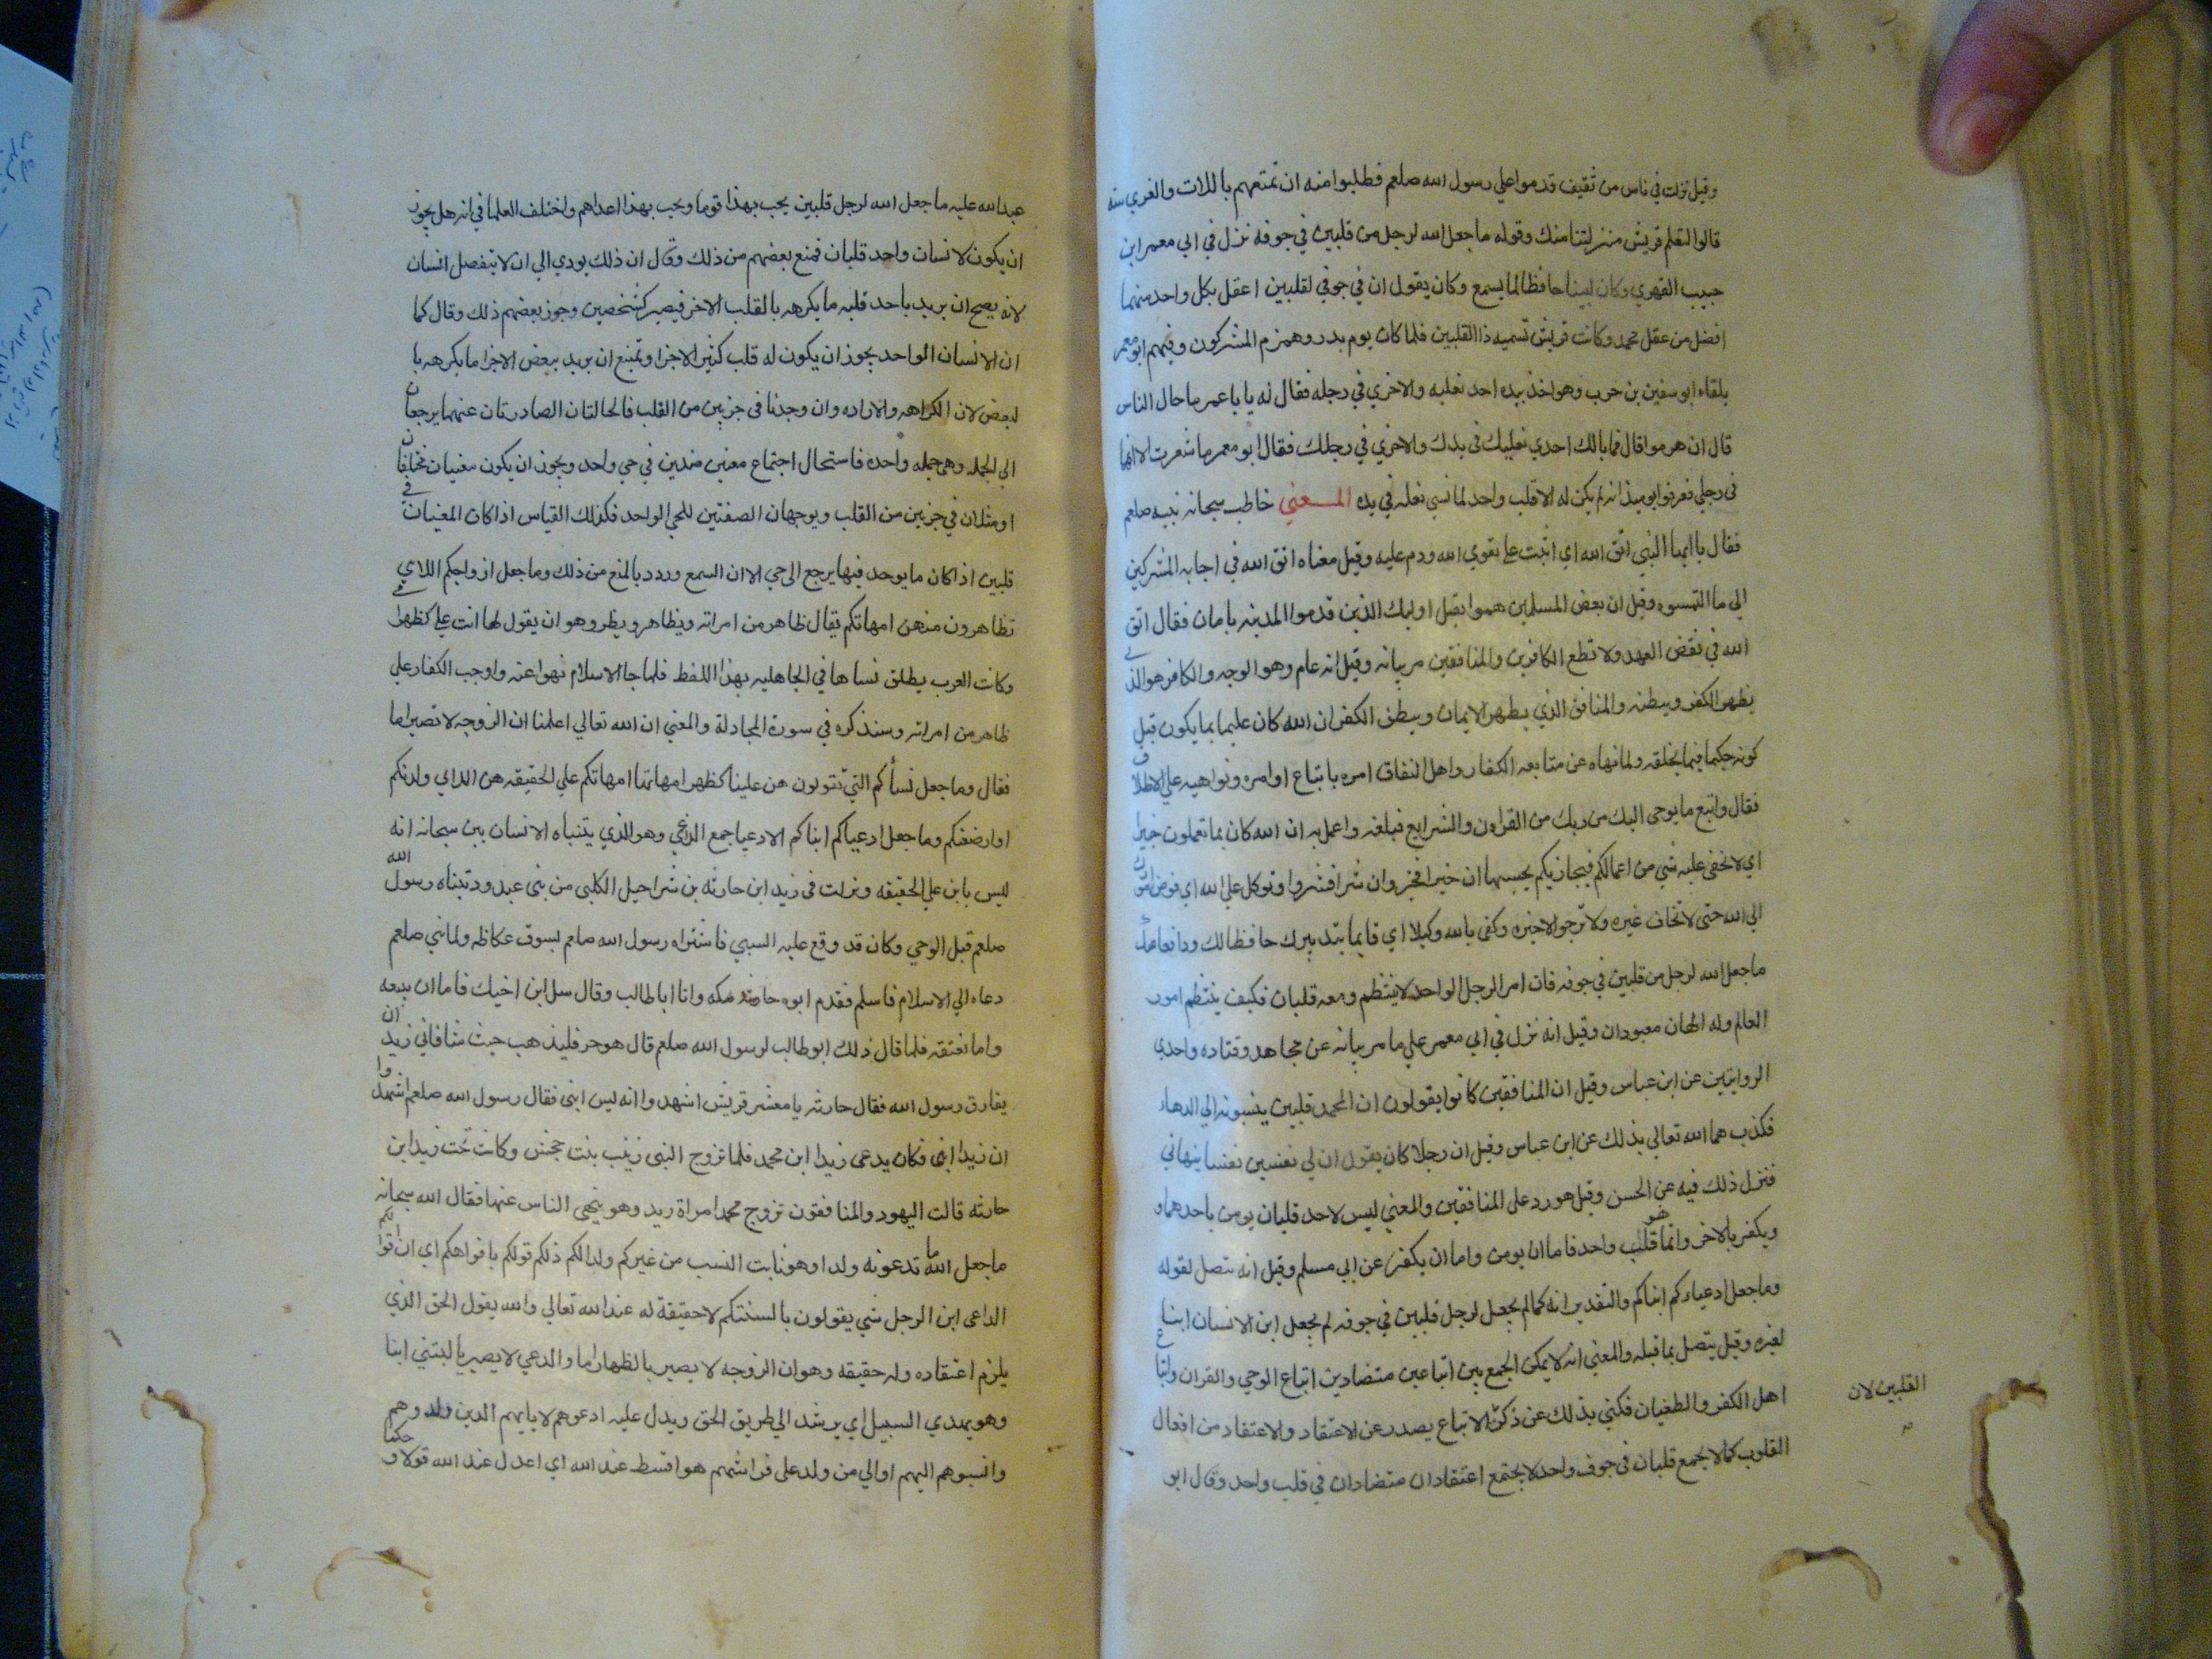 وقيل نزلت في ناس من ثقيف قدموا علي رسول الله صلعم فطلبوا منه ان تمتعهم باللات والغري سنه
قالوا لتعلم قريش منزلتنا منك وقوله ما جعل الله لرجل من قلبين في جوفه نزل في ابي معمر ابن
حبيب الفهري وكان لبيبا حافظا لما يسمع وكان يقول ان في جوفي لقلبين اعقل بكل واحد منهما
افضل من عقل محمد وكانت قريش تسميه ذا القلبين فلما كان يوم بدر وهمزم المشركون وفيهم ابو معمر
يلقاه ابو سفين بن حرب وهو اخذ بيده احد نعليه والاخري في رجله فقال له يا با عمر ما حال الناس
قال انهرموا قال فما بالك احدي نعليك في يدك والاخري في رجلك فقال ابو معمر ما شعرت الا انهما
في رجلي فعرفوا يوميذ انه لم يكن له الا قلب واحد لما نسي نعله في يده المعني خاطب سبحانه نبيه صلعم
فقال يا ايها النبي اتق الله اي اثبت علي تقوي الله ودم عليه وقيل معناه اتق الله في اجابه المشركين
الي ما التمسوه وقيل ان بعض المسلمين هموا بقتل اوليك الذين قدموا المدينه بامان فقال اتق
الله في نقض العهد ولا تطع الكافرين والمنافقين مر بيانه وقيل انه عام وهو الوجه والكافر هو الذي
يظهر الكفر ويبطنه والمنافق الذي يظهر الايمان ويبطن الكفر ان الله كان عليما بما يكون قبل
كونه حكيما فيما يخلقه ولما نهاه عن متابعه الكفار واهل النفاق امره باتباع اوامره ونواهيه علي الاطلاق
فقال واتبع ما يوحي اليك من ربك من القران والشرايع فبلغه واعمل به ان الله كان بما تعملون خبيرا
اي لا يخفي عليه شي من اعمالكم فيجازيكم بحسبها ان خيرا فخير وان شرا فشروا وتوكل علي الله اي فوض امورك
الي الله حتي لا تخاف غيره ولا ترجو الا خيره وكفي بالله وكيلا اي قايما بتدبيرك حافظا لك ودافعا عنك
ما جعل الله لرجل من قلبين في جوفه فان امر الرجل الواحد لا ينتظم ومعه قلبان فكيف ينتظم امور
العالم وله الهان معبودان وقيل انه نزل في ابي معمر علي ما مر بيانه عن مجاهد وقتاده واحدي
الروايتين عن ابن عباس وقيل ان المنافقين كانوا يقولون ان لمحمد قلبين ينسبونه الي الدهاء
فكذبهما الله تعالي بذلك عن ابن عباس وقيل ان رجلا كان يقول ان لي نفسين نفسا ينهاني
فنزل ذلك فيه عن الحسن وقيل هو رد علي المنافقين والمعني ليس لاحد قلبان يومن باحدهما و
ويكفر بالاخر وانما هو قلب واحد فاما ان يومن واما ان يكفر عن ابي مسلم وقيل انه يتصل لقوله
وما جعل ادعياءكم ابناكم والتقدير انه كما لم يجعل لرجل قلبين في جوفه لم يجعل ابن الانسان ابنا
لغيره وقيل يتصل بما قبله والمعني انه لا يمكن الجمع بين اتباعين متضادين اتباع الوحي والقران واتباع
اهل الكفر والطغيان فكني بذلك عن ذكر القلبين لان الاتباع يصدر عن الاعتقاد والاعتقاد من افعال
القلوب كما لا يجمع قلبان في جوف واحد لا يجتمع اعتقادان متضادان في قلب واحد وقال ابو
القلبين لان
عبد الله عليه ما جعل الله لرجل قلبين يحب بهذا قوما ويحب بهذا اعداهم واختلف العلما في انه هل يجوز
ان يكون لانسان واحد قلبان فمنع بعضهم من ذلك وقال ان ذلك يودي الي ان لا ينفصل انسان
لانه يصح ان يريد باحد قلبه ما يكرهه بالقلب الاخر فيصير كشخصين وجوز بعضهم ذلك وقال كما
ان الانسان الواحد يجوز ان يكون له قلب كثير الاجزا ويمتنع ان يريد ببعض الاجزا ما يكرهه با
لبعض لان الكراهه والاراده وان وجدنا في جزيين من القلب فالحالتان الصادرتان عنهما يرجعان
الي الجمله وهي جمله واحده فاستحال اجتماع معنيين ضدين في حي واحد ويجوز ان يكون معنيان مختلفان
او مثلان في جزيين من القلب ويوجبان الصفتين للحي الواحد فكذلك القياس اذا كان المعنيان في
قلبين اذا كان ما يوحد فيها يرجع الي حي الا ان السمع وردد بالمنع من ذلك وما جعل ازواجكم اللاي
تظاهرون منهن امهاتكم يقال ظاهر من امراته ويظاهر ويظر وهو ان يقول لها انت علي كظهر
وكانت العرب يطلق نساها في الجاهليه بهذا اللفظ فلما جا الاسلام نهوا عنه واوجب الكفار علي
ظاهر من امراته وسنذكره في سورة المجادلة والمعني ان الله تعالي اعلمنا ان الزوجه لا تصير اما
فقال وما جعل نساكم التي تقولون هن علينا كظهر امهاتنا امهاتكم علي الحقيقه هن الداي ولدنكم
او ارضعنكم وما جعل ادعياكم ابناكم الادعيا جمع الداعي وهو الذي يتبناه الانسان بين سبحانه انه
ليس بابن علي الحقيقه ونزلت في زيد ابن حارثه بن شراحيل الكلبي من بني عبد ود تبناه رسول الله
صلعم قبل الوحي وكان قد وقع عليه السبي فاشتراه رسول الله صلعم بسوق عكاظه ولما نبي صلعم
دعاه الي الاسلام فاسلم فقدم ابوه حارثه مكه واتا ابا طالب وقال سل ابن اخيك فاما ان يبيعه
واما نعتقه فلما قال ذلك ابو طالب لرسول الله صلعم قال هو حر فليذهب حيث شا فابي زيد ان
يفارق رسول الله فقال حارثه يا معشر قريش اشهدوا انه ليس ابني فقال رسول الله صلعم اشهدوا
ان زيدا ابني فكان يدعي زيدا ابن محمد فلما تزوج النبي زينب بنت جحش وكانت تحت زيد ابن
حارثه قالت اليهود والمنافقون تزوج محمد امراة زيد وهو ينهي الناس عنها فقال الله سبحانه
ما جعل الله ما تدعونه ولدا وهو ثابت النسب من غيركم ولدا لكم ذلكم قولكم بافواهكم اي ان قولكم
الداعي ابن الرجل شي يقولون بالسنتكم لا حقيقة له عند الله تعالي والله يقول الحق الذي
يلزم اعتقاده وله حقيقه وهو ان الزوجه لا يصير بالظهار اما والدعي لا يصير بالتبني ابنا
وهو يهدي السبيل اي يرشد الي طريق الحق ويدل عليه ادعوهم لابايهم الدين ولدوهم
وانسبوهم اليهم او الي من ولد علي فراشهم هو اقسط عند الله اي اعدل عند الله قولا و حكما